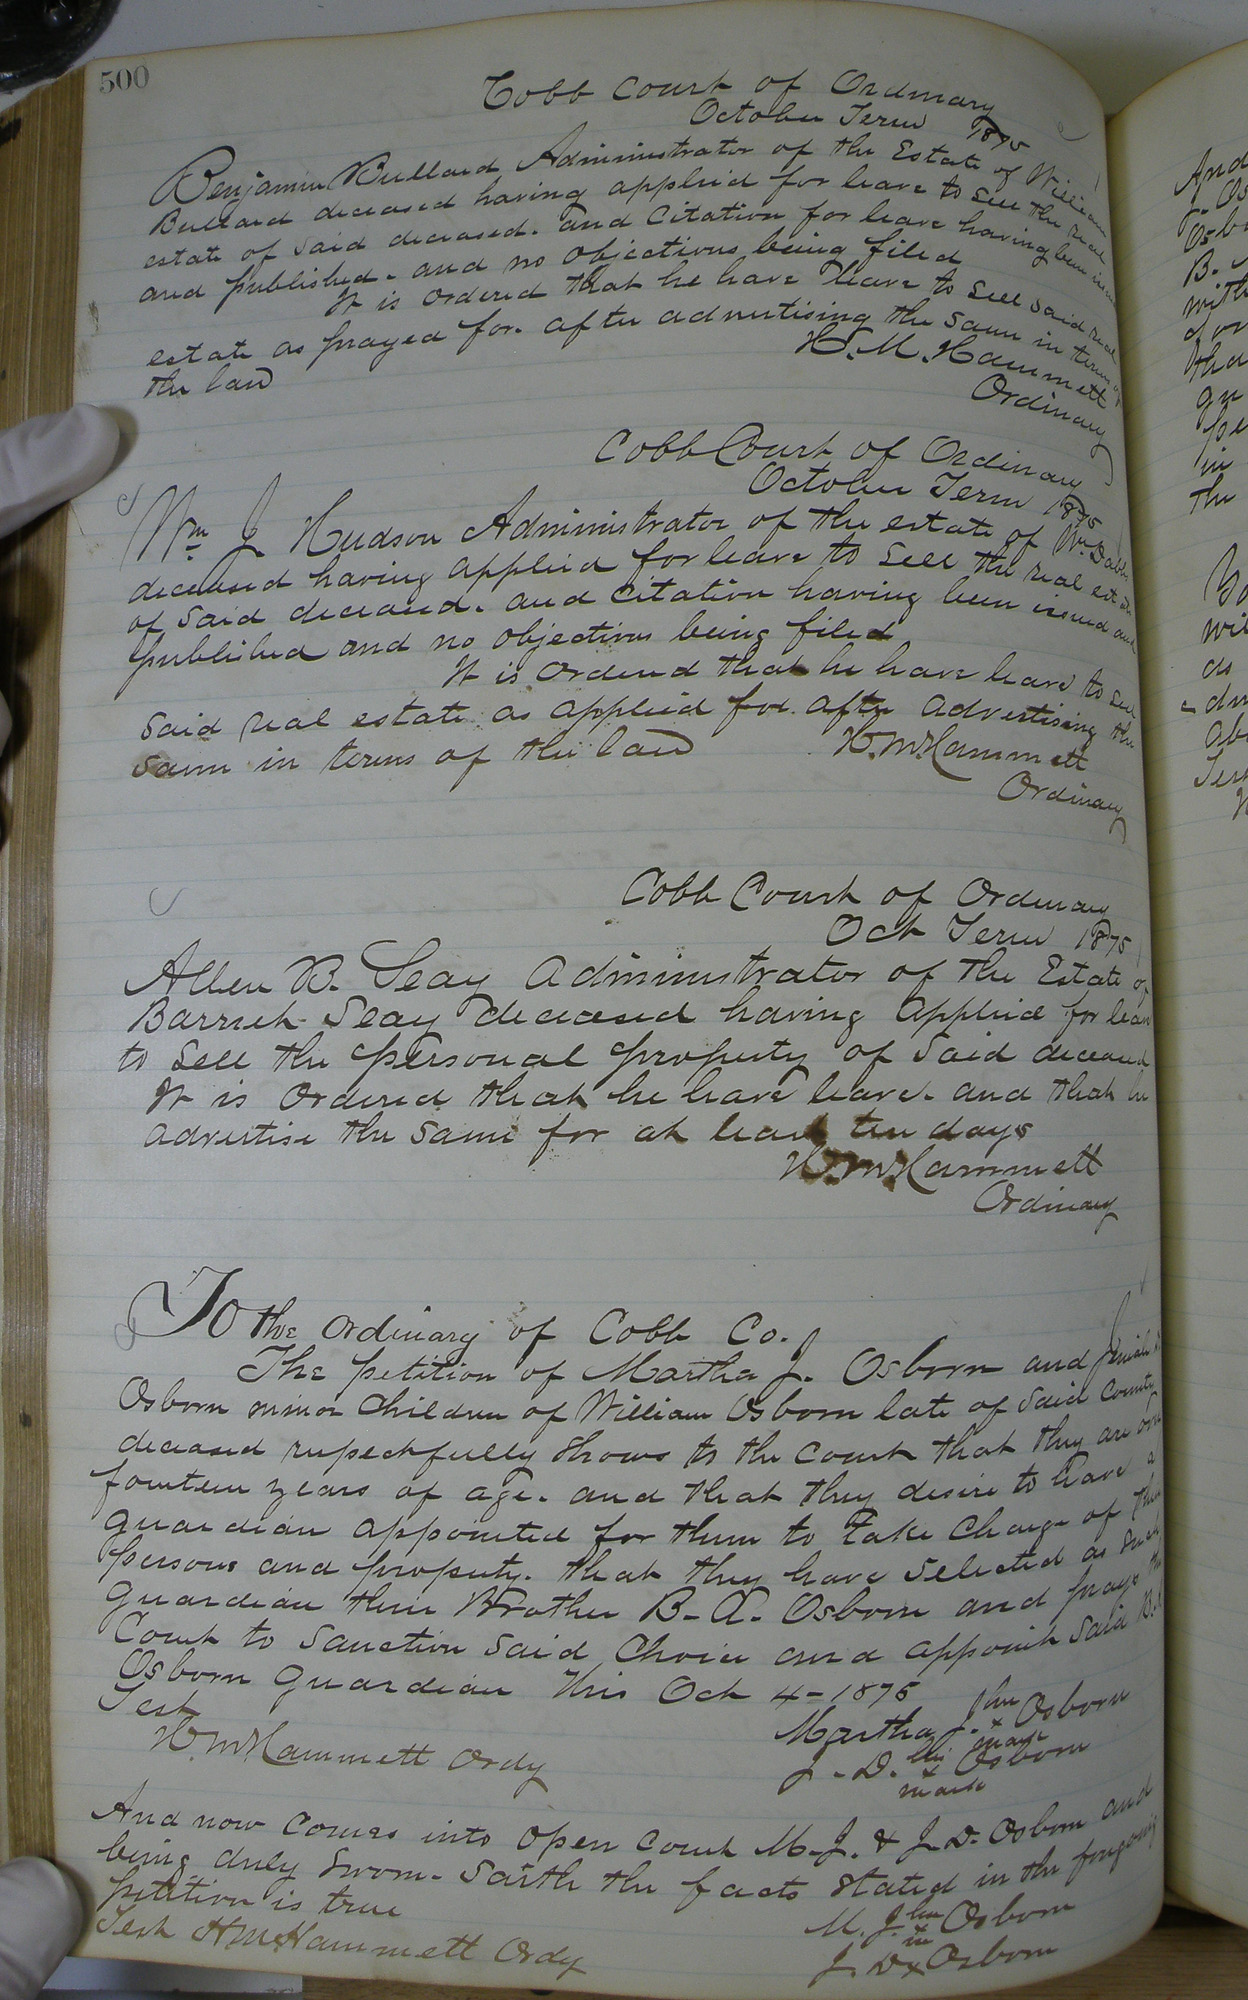 500
Cobb Court of Ordinary
October Term 1875
Benjamin Bullard Administrator of the Estate of William
Bullard deceased having applied for leave to sell the real
estate of said deceased. and Citation for leave having been
and published. and no objections being filed
It is ordered that he have leave to sell said real
estate as prayed for. after advertising the same in terms of
the law
H. M. Hammett
Ordinary
Cobb Court of Ordinary
October Term 1875
Wm J. Hudson Administrator of the estate of Wm
deceased having applied for leave to sell the real estate
of said deceased. and Citation having been issued and
published and no objections being filed
It is ordered that he have leave to sell
said real estate as applied for after advertising the
same in terms of the law
H. M. Hammett
Ordinary
Cobb Court of Ordinary
Oct Term 1875
Allen B. Seay Administrator of the Estate of
Barrick Seay deceased having applied for leave
to sell the personal property of said deceased
It is ordered that he have leave. and that he
advertise the same for at least ten days
H. M. Hammett
Ordinary
To the Ordinary of Cobb Co.
The petition of Martha J. Osborn and
Osborn minor Children of William Osborn late of said County
deceased respectfully shows to the Court that they are over
fourteen years of age. and that they desire to have a
guardian appointed for them to take charge of their
persons and property. that they have selected as such
guardian their Brother B. A. Osborn and prays the
Court to sanction said Choice and appoint said B. A.
Osborn guardian This Oct 4 - 1875
Test
Martha J. her x mark Osborn
H M Hammett Ordy
J. D. his x mark Osborn
And now comes into open court M. J. & J. D. Osborn and
being duly sworn. saith the facts stated in the foregoing
petition is true
M. J. her x m Osborn
Test H M Hammett Ordy
J. D x Osborn
And
Osb
B.
with
tha
gu
pe
in
the
wi
as
Abo